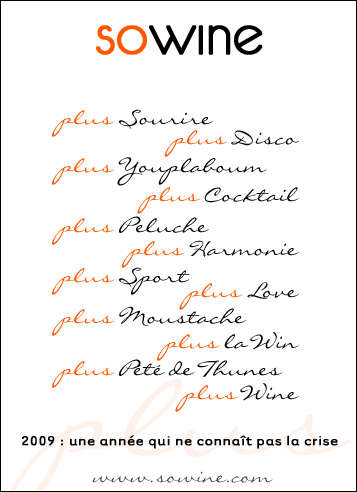 sowine
plus Sourire
plus Disco
plus Youplaboum
plus Cocktail
plus Peluche
plus Harmonie
plus Sport
plus Love
plus Moustache
plus la Win
plus Peté de Thunes
plus Wine
plus
2009 : une année qui ne connaît pas la crise
www.sowine.com